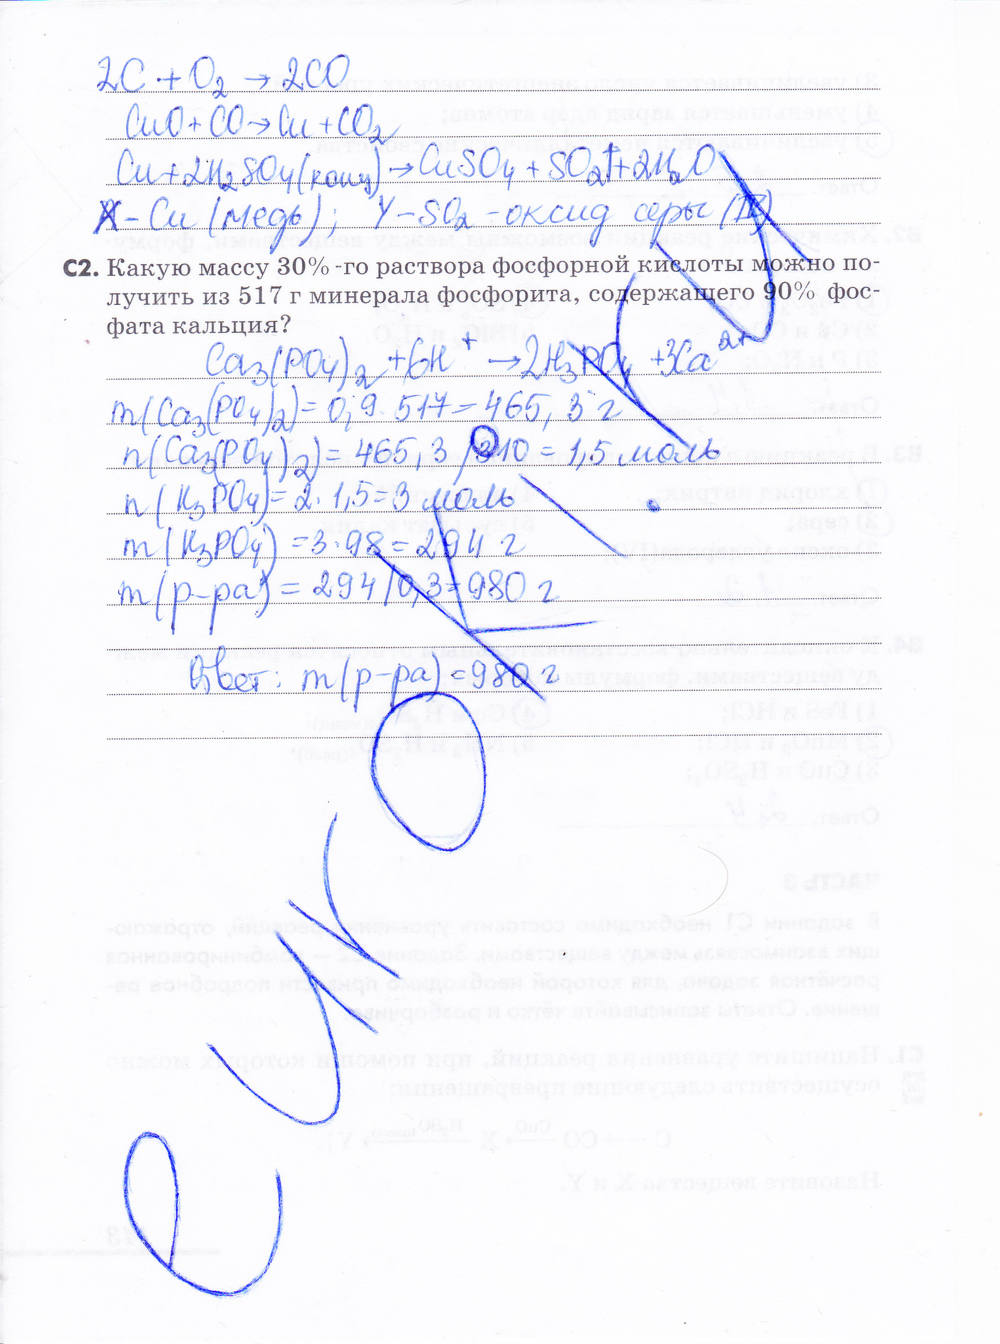 2C + O₂ → 2CO
CuO + CO → Cu + CO₂
Cu + 2H₂SO₄(конц) → CuSO₄ + SO₂↑ + 2H₂O
X – Cu (медь); Y – SO₂ – оксид серы (IV)
С2. Какую массу 30%-го раствора фосфорной кислоты можно по-
лучить из 517 г минерала фосфорита, содержащего 90% фос-
фата кальция?
Ca₃(PO₄)₂ + 6H⁺ → 2H₃PO₄ + 3Ca²⁺
m(Ca₃(PO₄)₂) = 0,9 · 517 = 465,3 г
n(Ca₃(PO₄)₂) = 465,3 / 310 = 1,5 моль
n(H₃PO₄) = 2 · 1,5 = 3 моль
m(H₃PO₄) = 3 · 98 = 294 г
m(р-ра) = 294 / 0,3 = 980 г
Ответ: m(р-ра) = 980 г